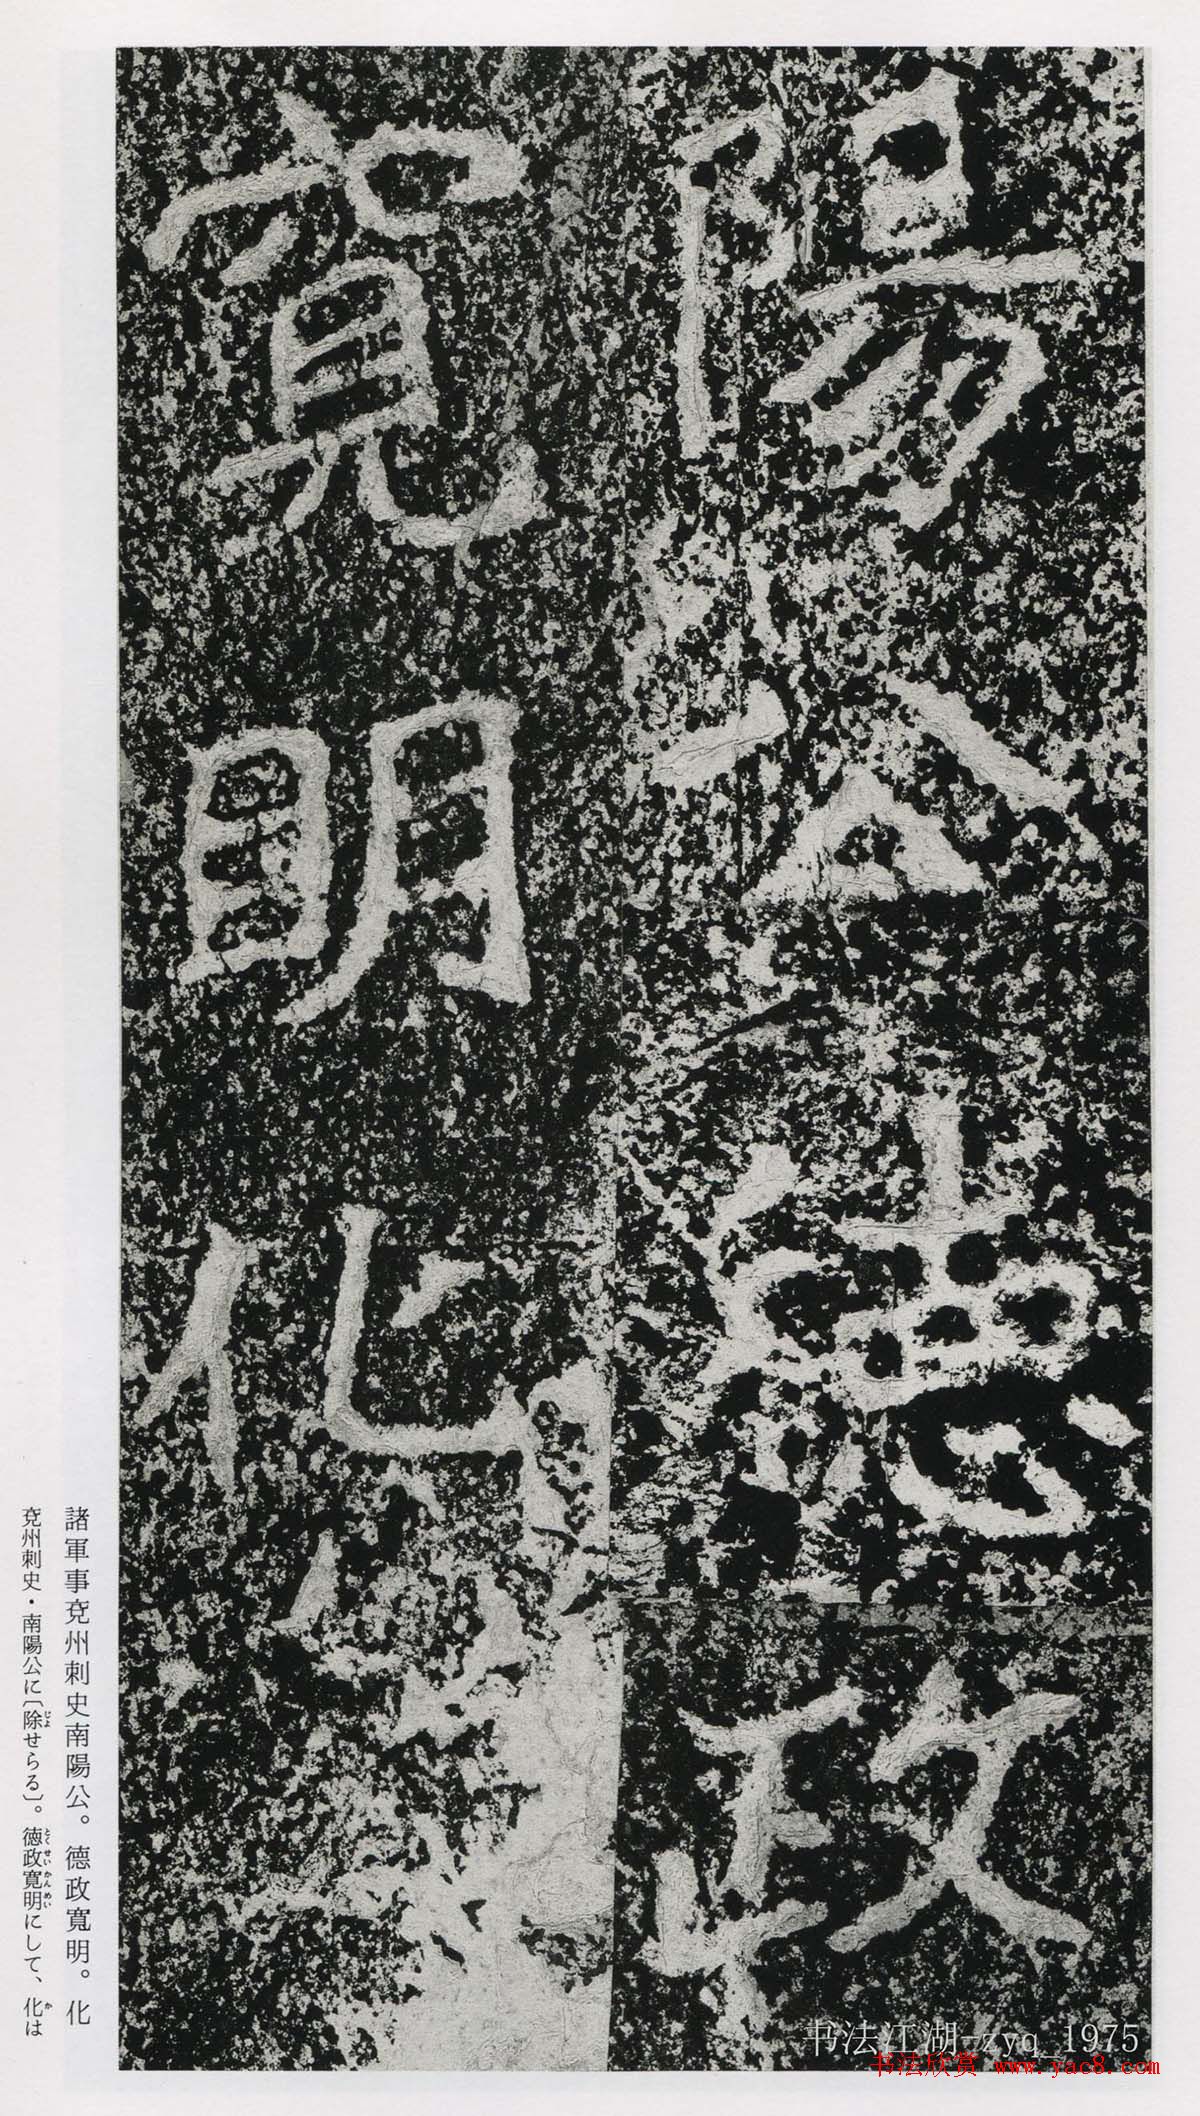 陽公德政
寬明化
諸軍事兗州刺史南陽公。德政寬明。化
兗州刺史・南陽公に〔除せらる〕。德政寬明にして、化は
じよ
とくせいかんめい
か
书法江湖-zyq_1975
书法欣赏 www.yac8.com